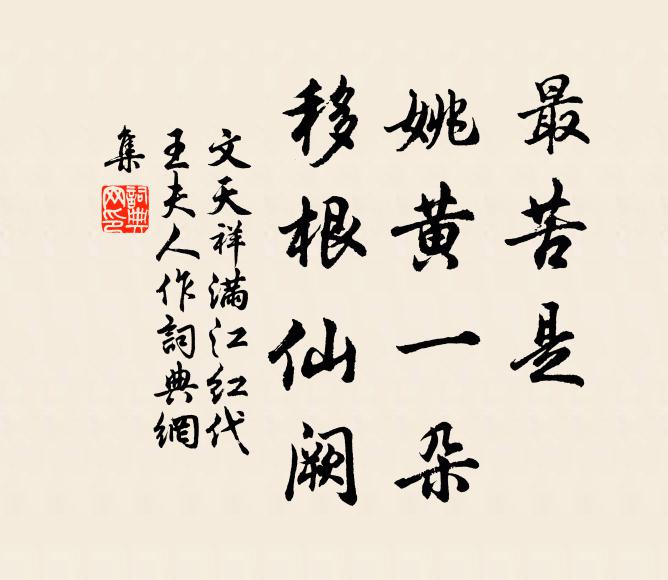 最苦是
姚黄一朵
移根仙阙
文天祥满江红代
王夫人作詞典網
集
詞典
网印